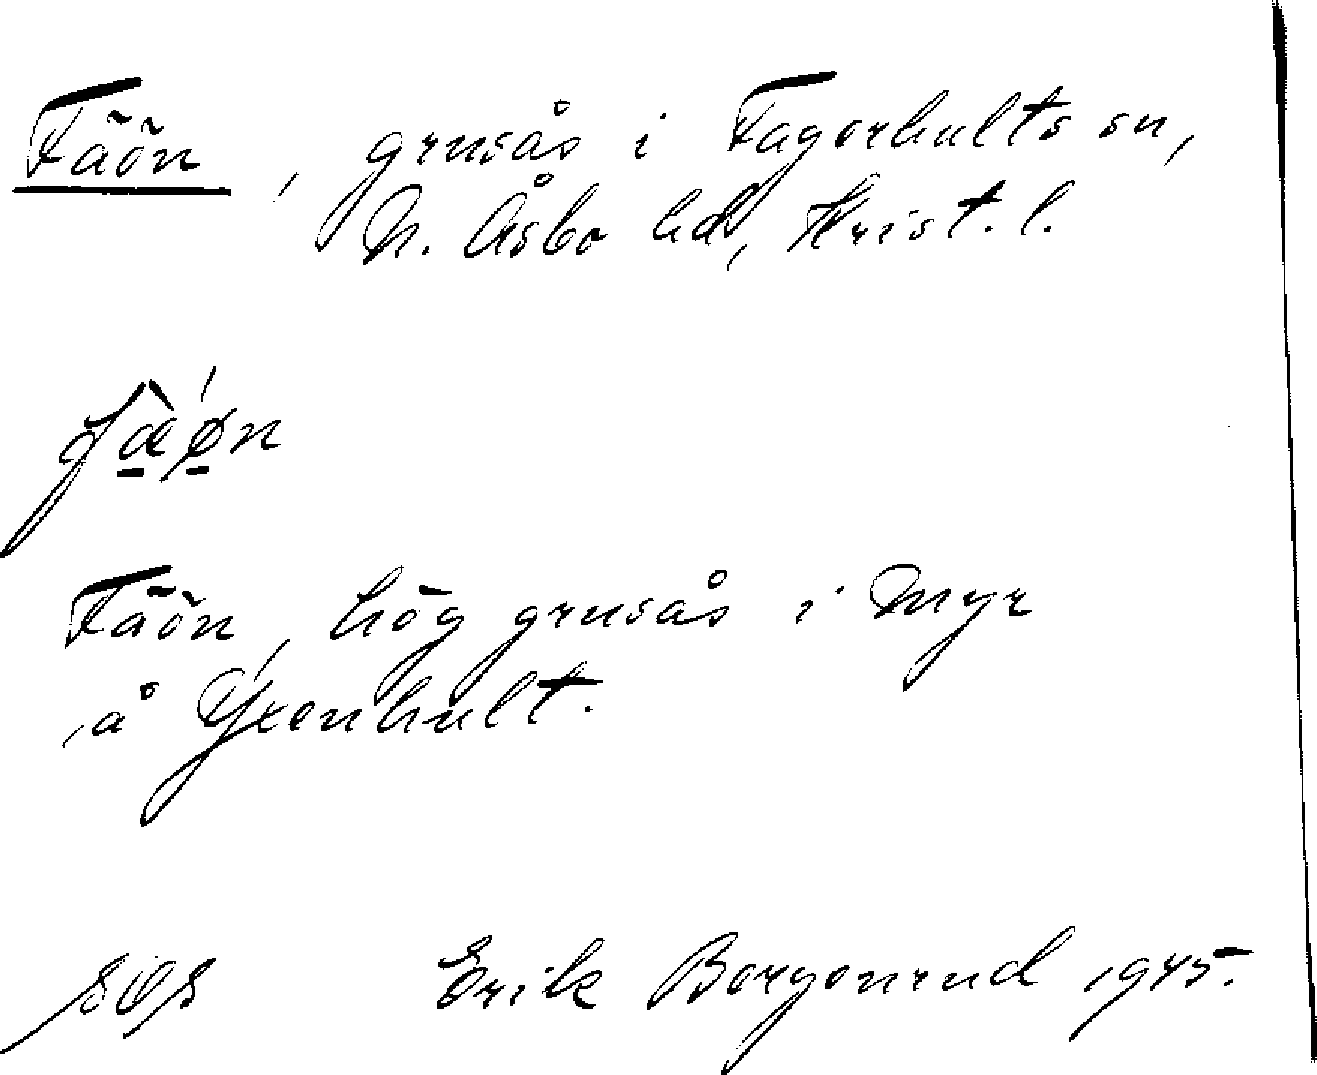 Fäön, grusås i Fagerhults sn,
N. Åsbo hd, Krist. l.
fæ̂ǿn
Fäön, hög grusås i myr
å Yxenhult.
Erik Borgenrud 1945.